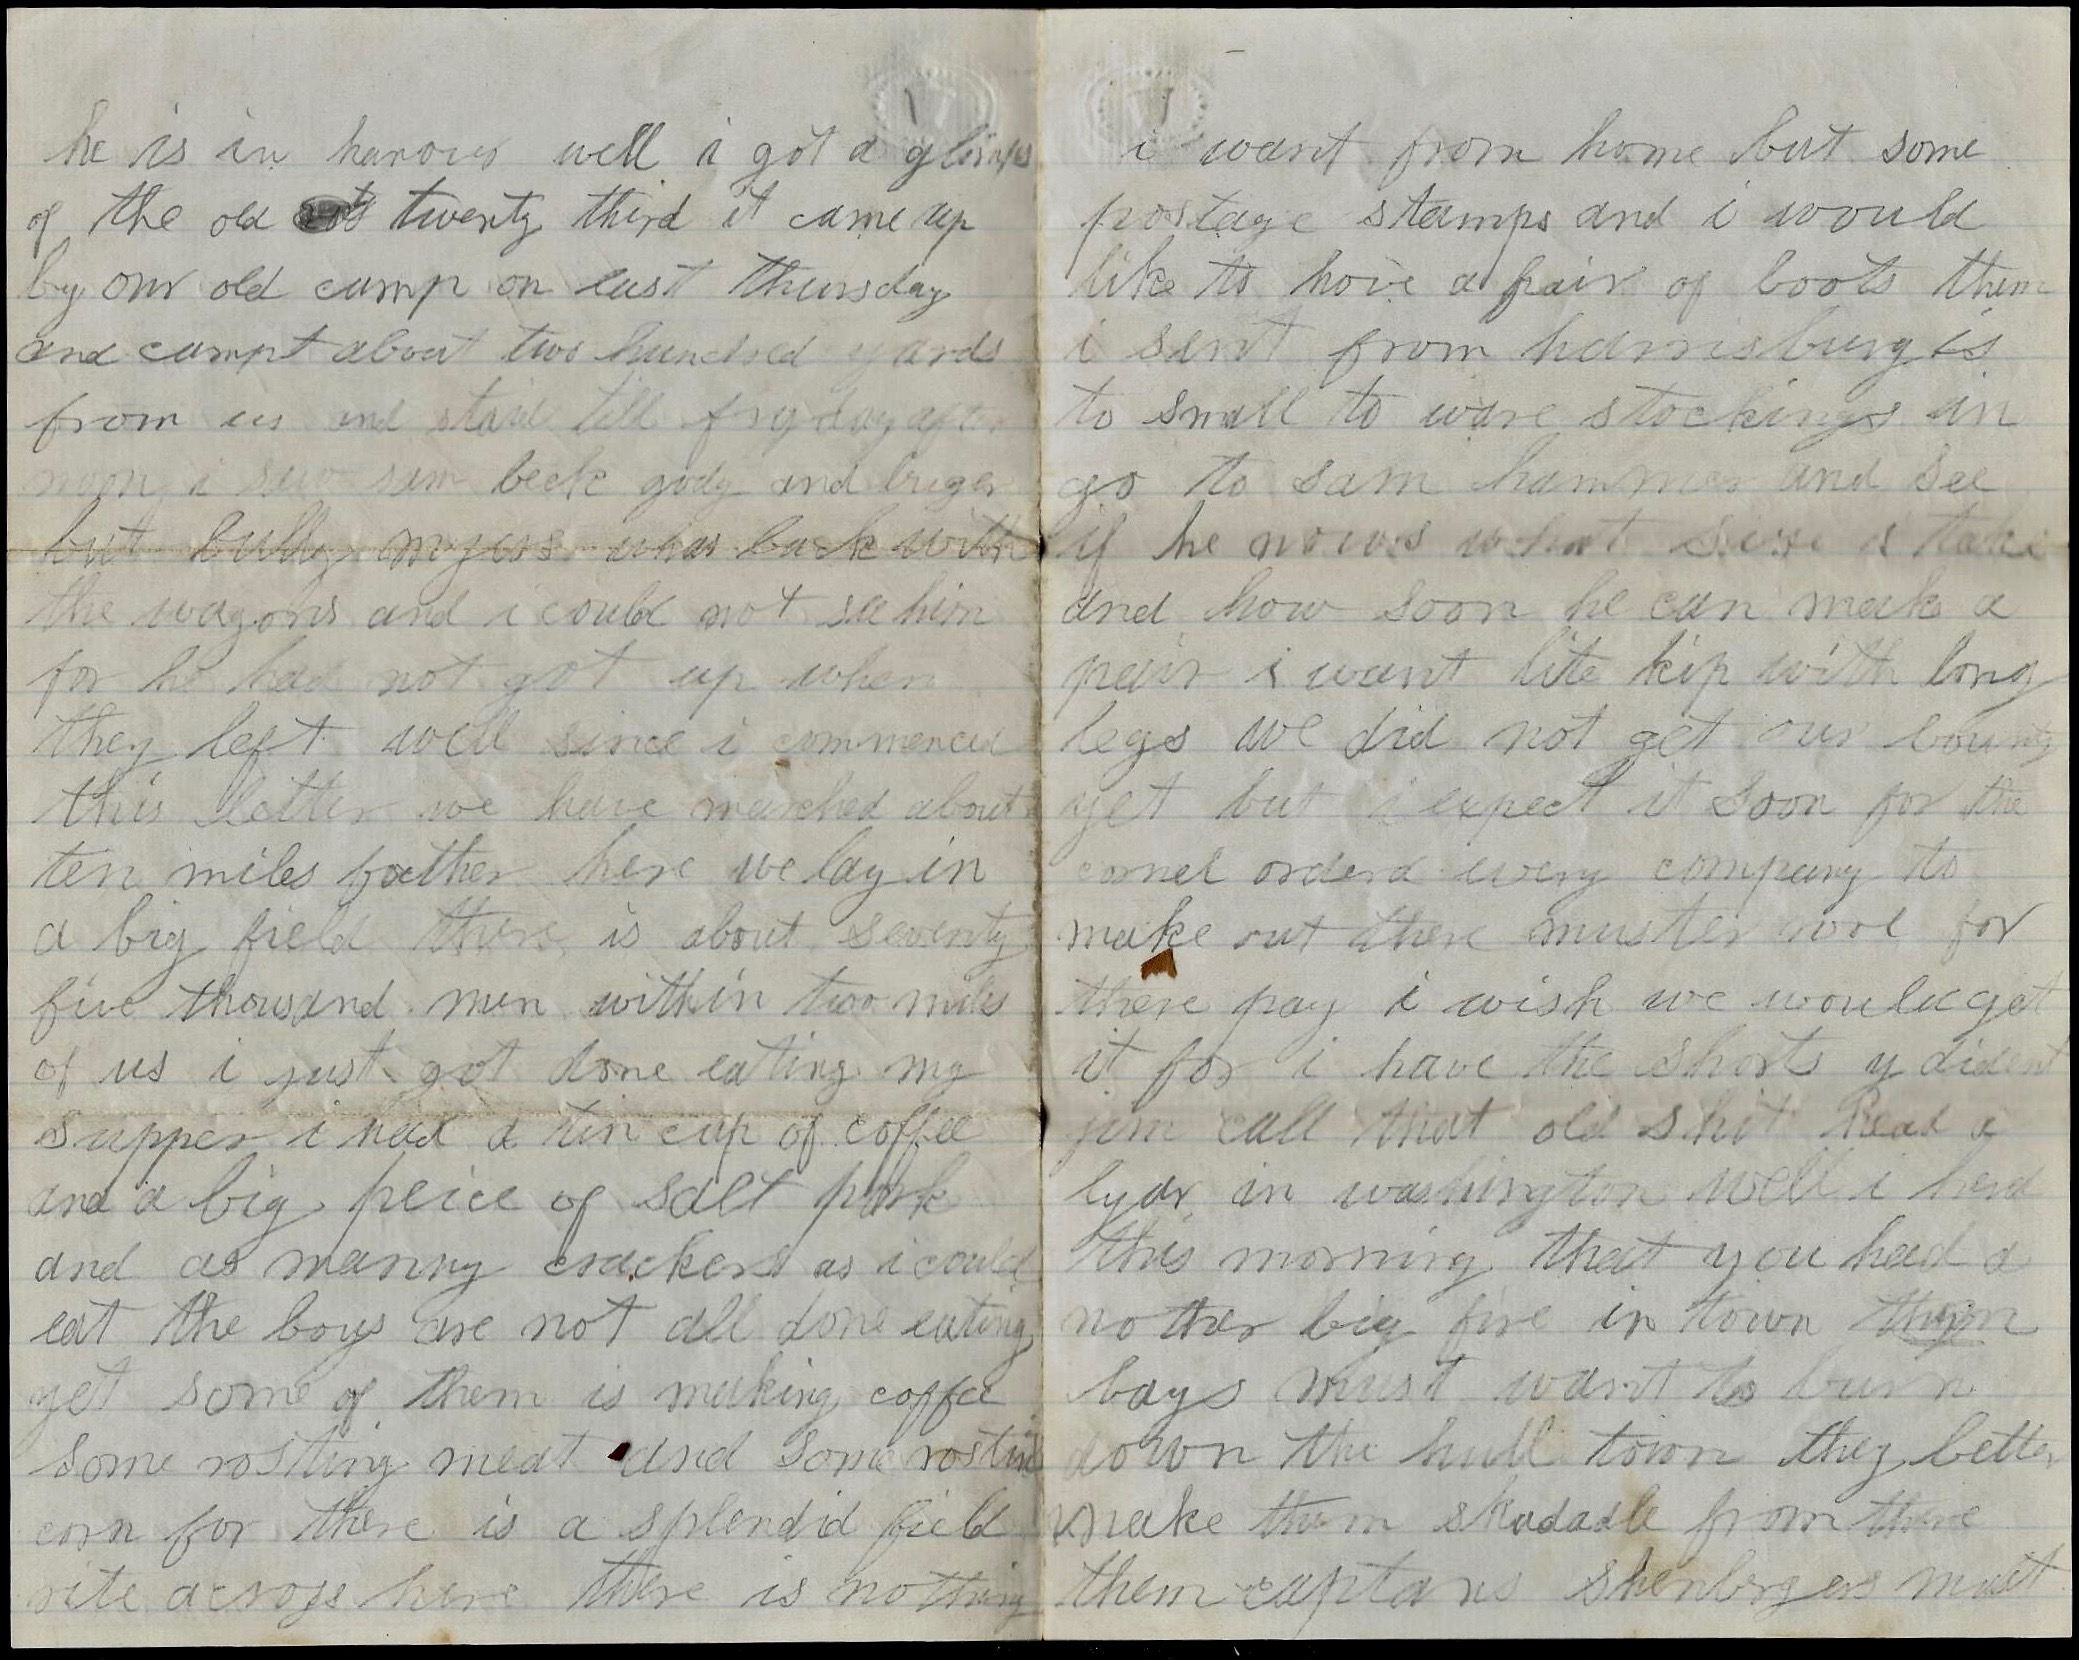 he is in hanover well i got a glimps
of the old twenty third it came up
by our old camp on last thursday
and campt about two hundred yards
from us and staid till fryday after
noon i saw sam beck gody and
but bully myers whas back with
the wagons and i could not see him
for he had not got up when
they left well since i commenced
this letter we have marched about
ten miles father here we lay in
a big field there is about seventy
five thousand men within two miles
of us i just got done eating my
supper i had a tin cup of coffee
and a big peice of salt pork
and as manny crackers as i could
eat the boys are not all done eating
yet some of them is making coffee
some rosting meat and some rostin
corn for there is a splendid field
rite across here there is nothing
i want from home but some
postage stamps and i would
like to have a pair of boots them
i sent from harrisburg is
to small to ware stockings in
go to sam hammer and see
if he nows what size i take
and how soon he can make a
pair i want lite kip with long
legs we did not get our bounty
yet but i expect it soon for the
cornel orderd every company to
make out there muster role for
there pay i wish we would get
it for i have the shorts y dident
jim call that old shit head a
lyar in washington well i herd
this morning that you had a
nother big fire in town
boys must want to burn
down the hull town they better
make them skadadle from there
them captans must